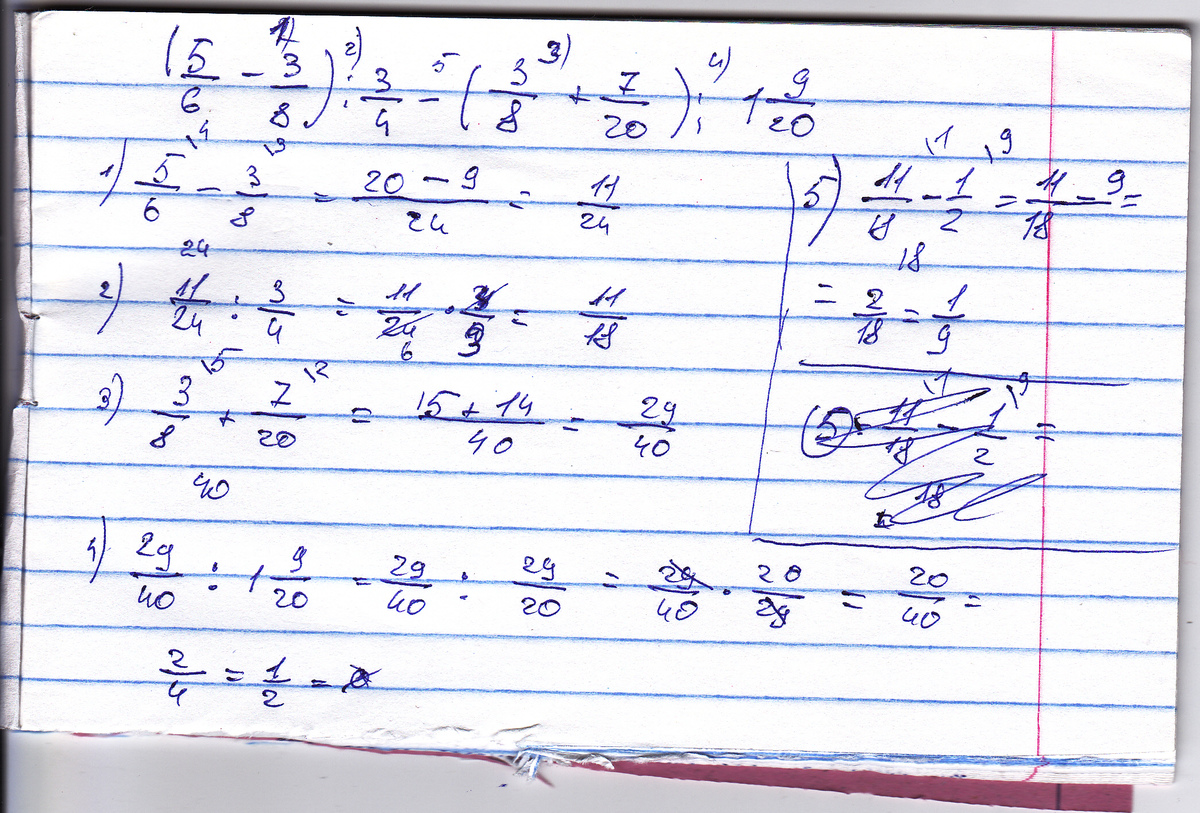 (5/6 - 3/8) : 3/4 - (3/8 + 7/20) : 1 9/20
1) 2) 5 3) 4)
1) 5/6 \4 - 3/8 \3 = (20 - 9)/24 = 11/24
24
2) 11/24 : 3/4 = 11/24 · 4/3 = 11/18
6
3) 3/8 \5 + 7/20 \2 = (15 + 14)/40 = 29/40
40
4) 29/40 : 1 9/20 = 29/40 : 29/20 = 29/40 · 20/29 = 20/40 =
2/4 = 1/2 =
5) 11/18 \1 - 1/2 \9 = (11 - 9)/18 =
18
= 2/18 = 1/9
5 11/18 \1 - 1/2 \9 =
18